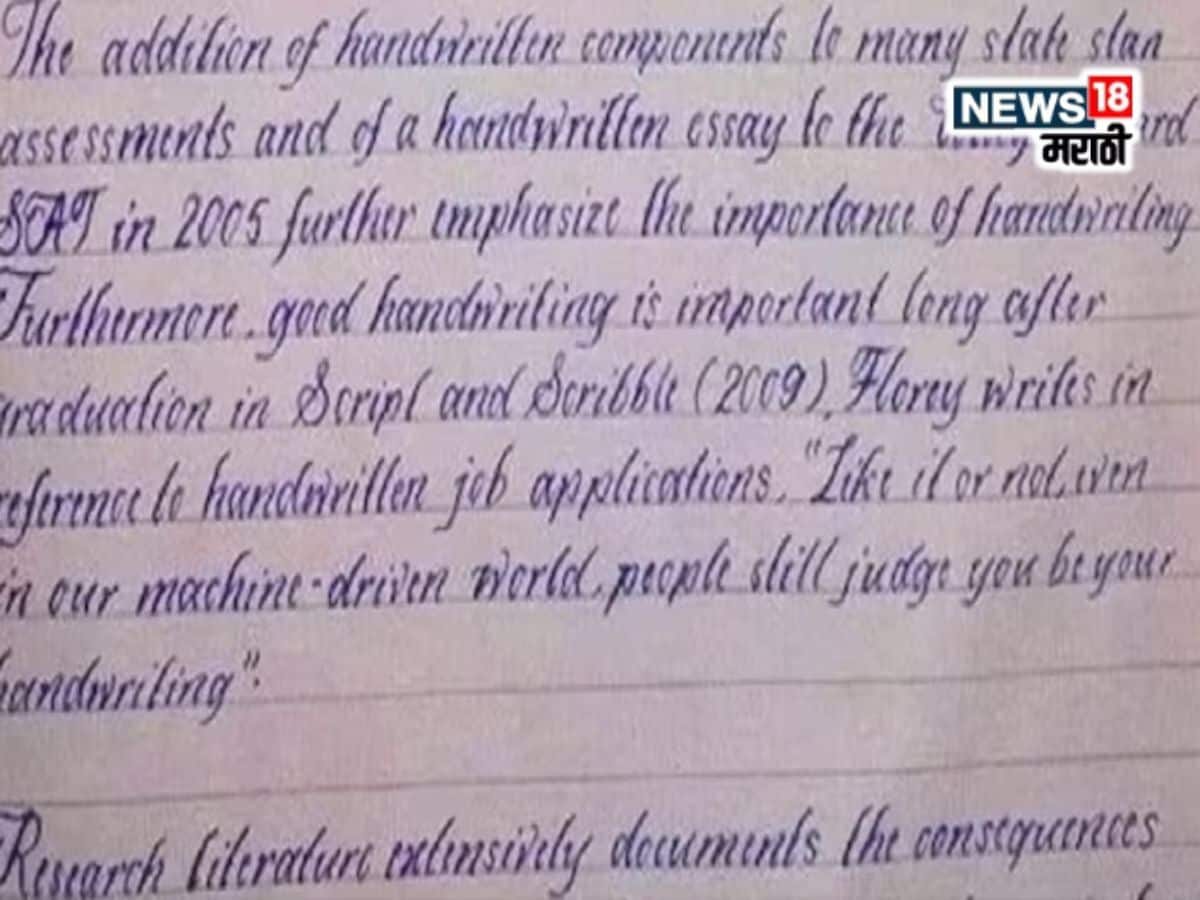 The addition of handwritten components to many state stan
assessments and of a handwritten essay to the
SAT in 2005 further emphasize the importance of handwriting
Furthermore, good handwriting is important long after
graduation in Script and Scribble (2009), Florey writes in
reference to handwritten job applications, "Like it or not, even
in our machine-driven world, people still judge you be your
handwriting".
Research literature extensively documents the consequences
NEWS18
मराठी